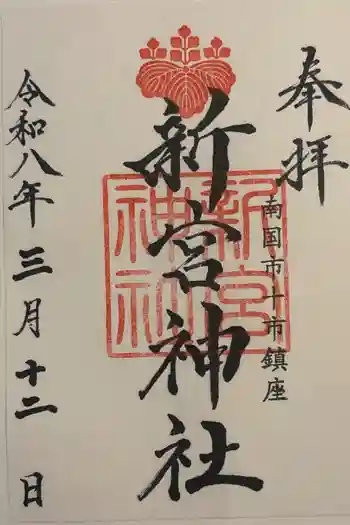 奉拝
南国市十市鎮座
新宮神社
新宮神社
令和八年三月十二日